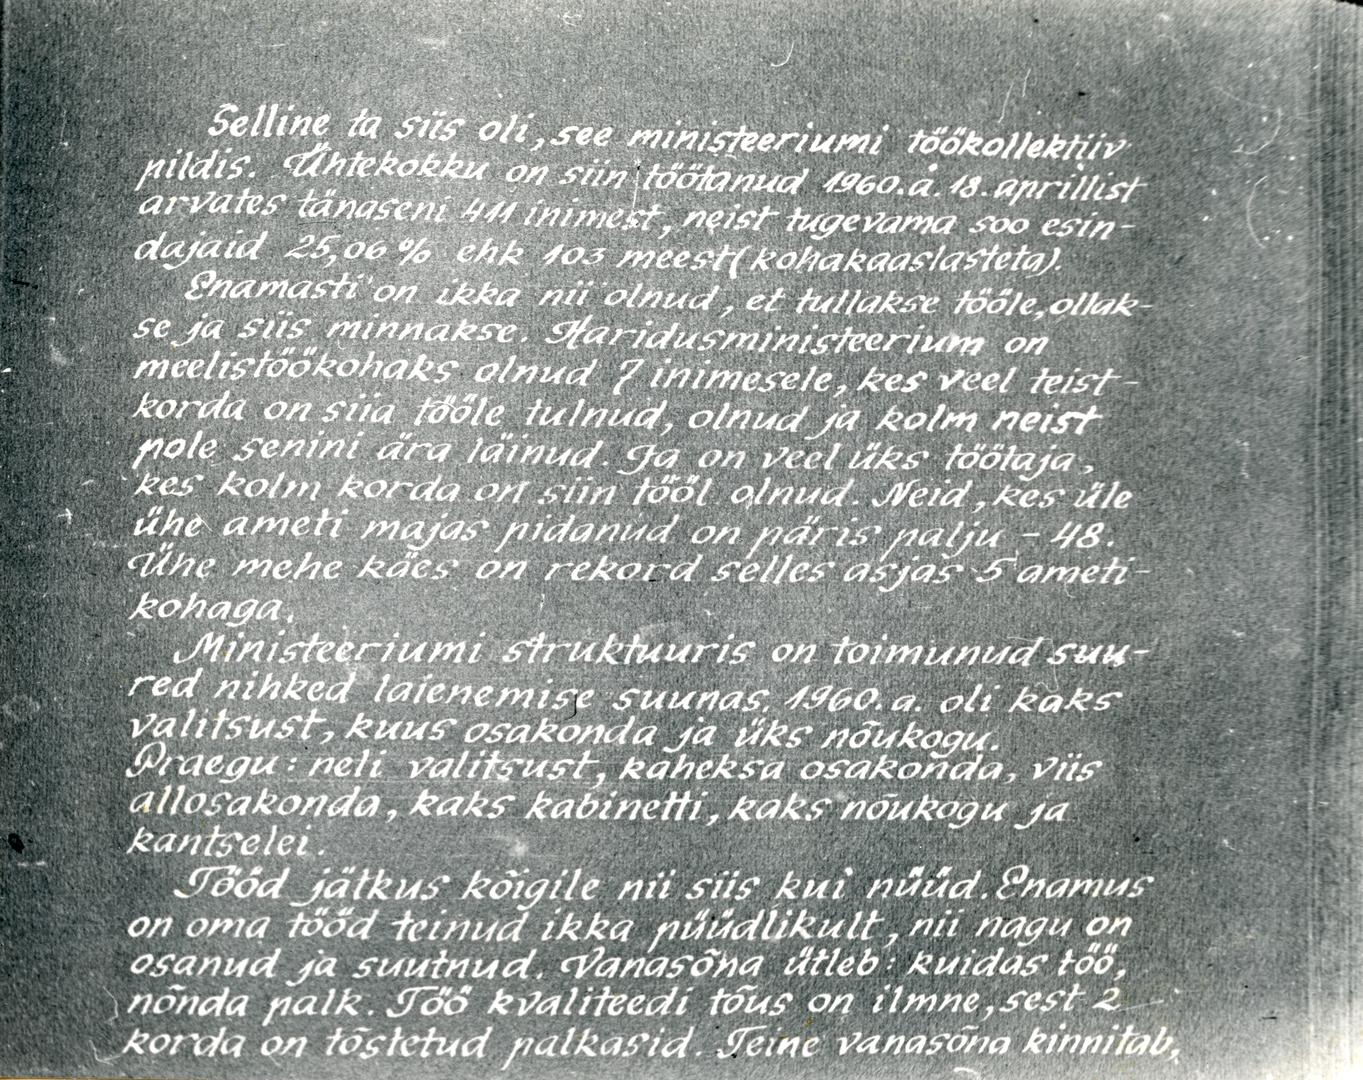 Selline ta siis oli, see ministeeriumi töökollektiiv
pildis. Ühtekokku on siin töötanud 1960.a. 18. aprillist
arvates tänaseni 411 inimest, neist tugevama soo esin-
dajaid 25,06 % ehk 103 meest (kohakaaslasteta).
Enamasti on ikka nii olnud, et tullakse tööle, ollak-
se ja siis minnakse. Haridusministeerium on
meelistöökohaks olnud 7 inimesele, kes veel teist-
korda on siia tööle tulnud, olnud ja kolm neist
pole senini ära läinud. Ja on veel üks töötaja,
kes kolm korda on siin tööl olnud. Neid, kes üle
ühe ameti majas pidanud on päris palju - 48.
Ühe mehe käes on rekord selles asjas 5 ameti-
kohaga.
Ministeeriumi struktuuris on toimunud suu-
red nihked laienemise suunas. 1960.a. oli kaks
valitsust, kuus osakonda ja üks nõukogu.
Praegu: neli valitsust, kaheksa osakonda, viis
allosakonda, kaks kabinetti, kaks nõukogu ja
kantselei.
Tööd jätkus kõigile nii siis kui nüüd. Enamus
on oma tööd teinud ikka püüdlikult, nii nagu on
osanud ja suutnud. Vanasõna ütleb: kuidas töö,
nõnda palk. Töö kvaliteedi tõus on ilmne, sest 2
korda on tõstetud palkasid. Teine vanasõna kinnitab,